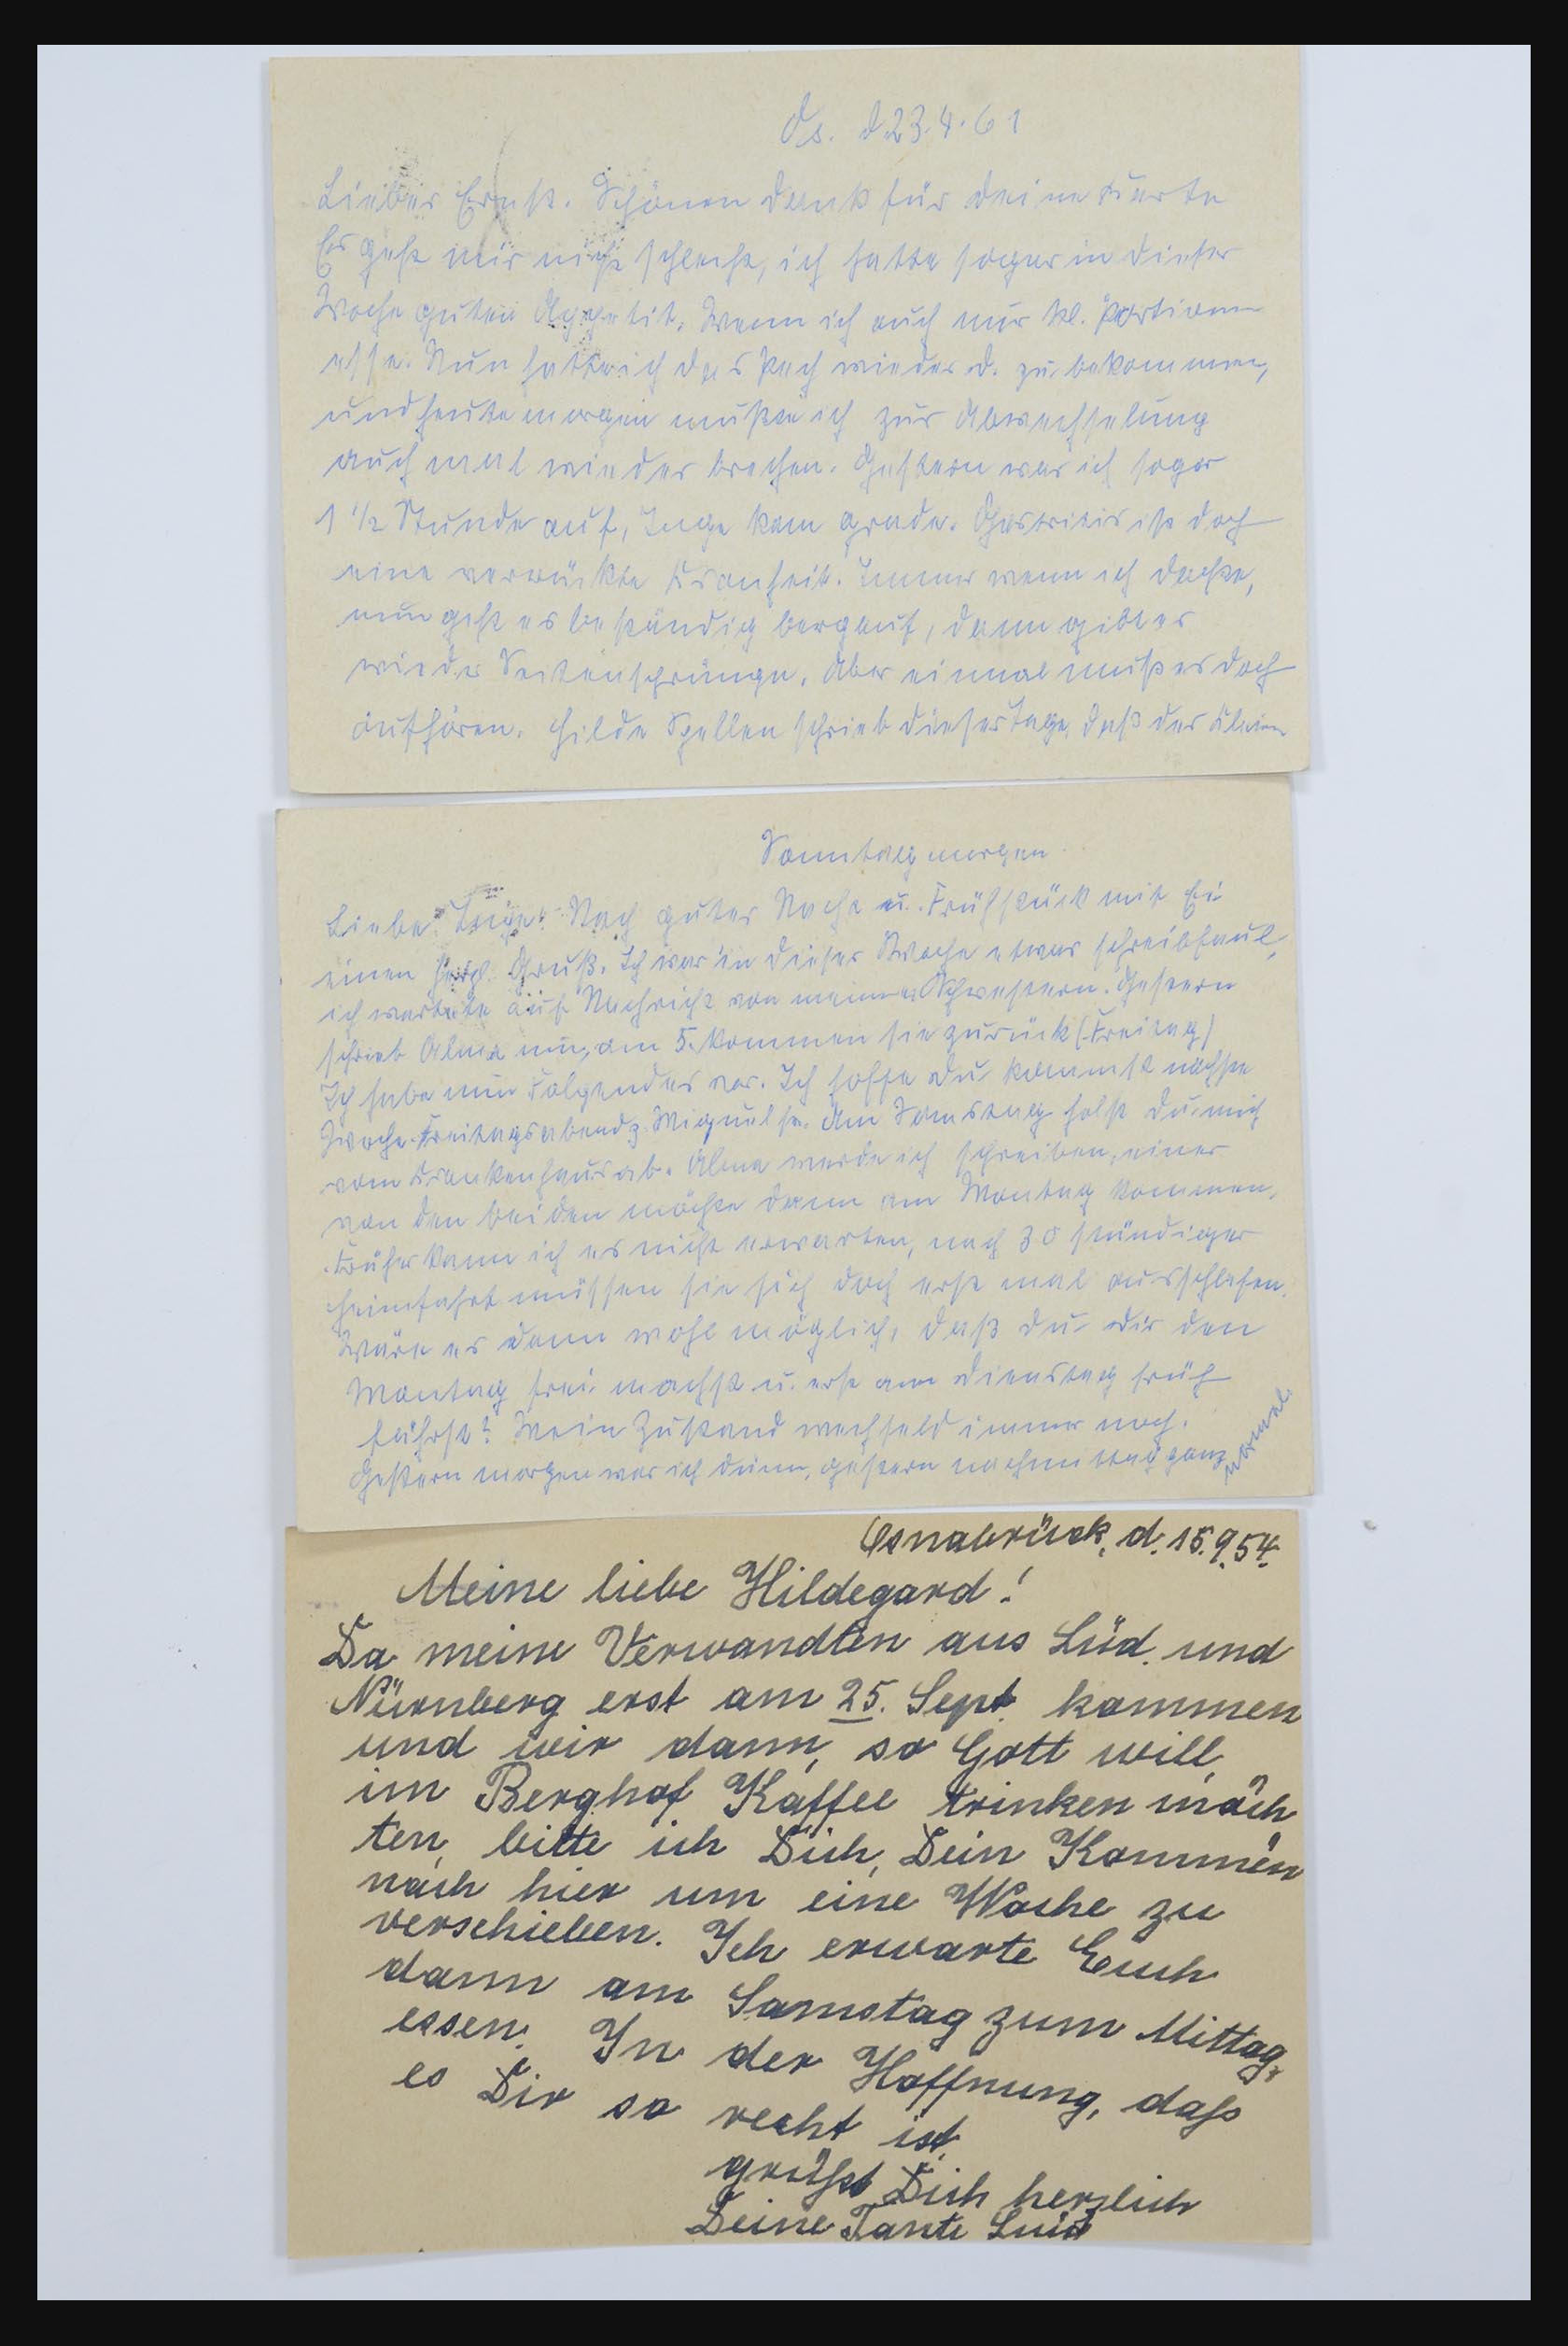 Os. d 23.4.61
Lieber Ernst. Schönen Dank für deine Karte
Es geht mir nicht schlecht, ich hatte sogar in dieser
Woche guten Appetit. Wenn ich auch nur kl. Portionen
esse. Nun hatte ich das Pech wieder D. zu bekommen,
und heute morgen mußte ich zur Abwechselung
auch mal wieder brechen. Gestern war ich sogar
1 1/2 Stunde auf, Inge kam grade. Gastritis ist doch
eine verrückte Krankheit. Immer wenn ich dachte,
nun geht es beständig bergauf, dann gibt es
wieder Seitensprünge. Aber einmal muß es doch
aufhören. Hilde Spellen schrieb dieser Tage, daß der Kleine
Sonntag morgen
Liebe Inge! Nach guter Nacht u. Frühstück mit Ei
einen herzl. Gruß. Ich war in dieser Woche etwas schreibfaul,
ich wartete auf Nachricht von meinen Schwestern. Gestern
schrieb Alma nun, am 5. kommen sie zurück (Freitag)
Ich habe nun Folgendes vor. Ich hoffe du kommst nächste
Woche Freitagsabend z. Miquelstr. Am Samstag holst du mich
vom Krankenhaus ab. Alma werde ich schreiben, einer
von den beiden möchte dann am Montag kommen.
Früher kann ich es nicht erwarten, nach 30 stündiger
Heimfahrt müssen sie sich doch erst mal ausschlafen.
Wäre es dann wohl möglich, daß du dir den
Montag frei machst u. erst am Dienstag früh
fährst? Mein Zustand wechseld immer noch.
Gestern morgen war ich dünn, gestern nachmittag ganz normal
Osnabrück, d. 15.9.54.
Meine liebe Hildegard!
Da meine Verwandten aus Lüd. und
Nürnberg erst am 25. Sept. kommen
und wir dann, so Gott will,
im Berghof Kaffee trinken möch
ten, bitte ich Dich, Dein Kommen
nach hier um eine Woche zu
verschieben. Ich erwarte Euch
dann am Samstag zum Mittag-
essen. In der Hoffnung, dass
es Dir so recht ist,
grüßt Dich herzlich
Deine Tante